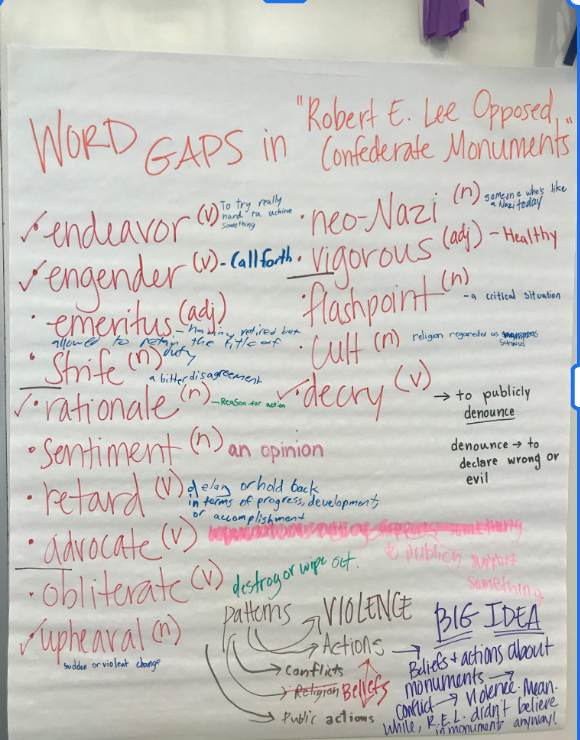 WORD GAPS in "Robert E. Lee Opposed
Confederate Monuments"
✓ endeavor (v) To try really
hard to achive
something
✓ engender (v) - Call forth
• emeritus (adj) - having retired but
allowed to retain the title of
• Strife (n) duty
a bitter disagreement
✓ rationale (n) - Reason for action
• sentiment (n) an opinion
• retard (v) delay or hold back
in terms of progress, development,
or accomplishment
• advocate (v)
to publicly support
something
• obliterate (v) destroy or wipe out.
✓ uphearal (n)
sudden or violent change
• neo-Nazi (n) someone who's like
a Nazi today
• vigorous (adj) - Healthy
• flashpoint (n)
- a critical situation
• Cult (n) religion regarded as
✓ decry (v)
→ to publicly
denounce
denounce → to
declare wrong or
evil
patterns
→ VIOLENCE
→ Actions →
→ Conflicts
→ Religion Beliefs
→ Public actions
BIG IDEA
Beliefs + actions about
monuments →
conflict → Violence. Mean-
while, R.E.L. didn't believe
in monuments anyway!